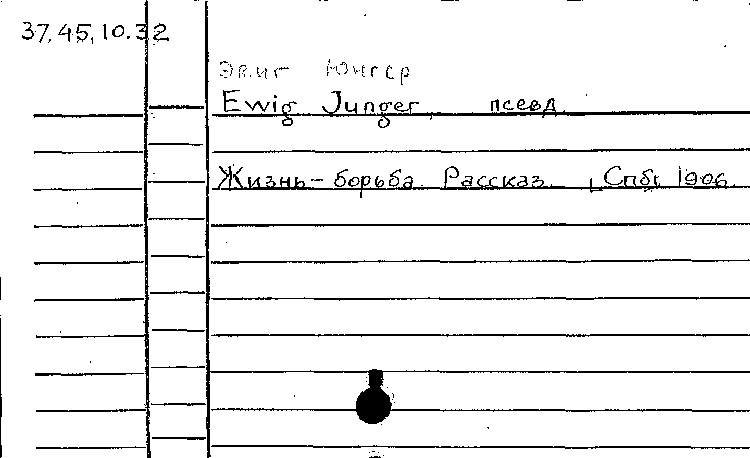 37.45.10.32
Эвиг Юнгер
Ewig Junger, псевд.
Жизнь – борьба. Рассказ. [Спб. 1906.